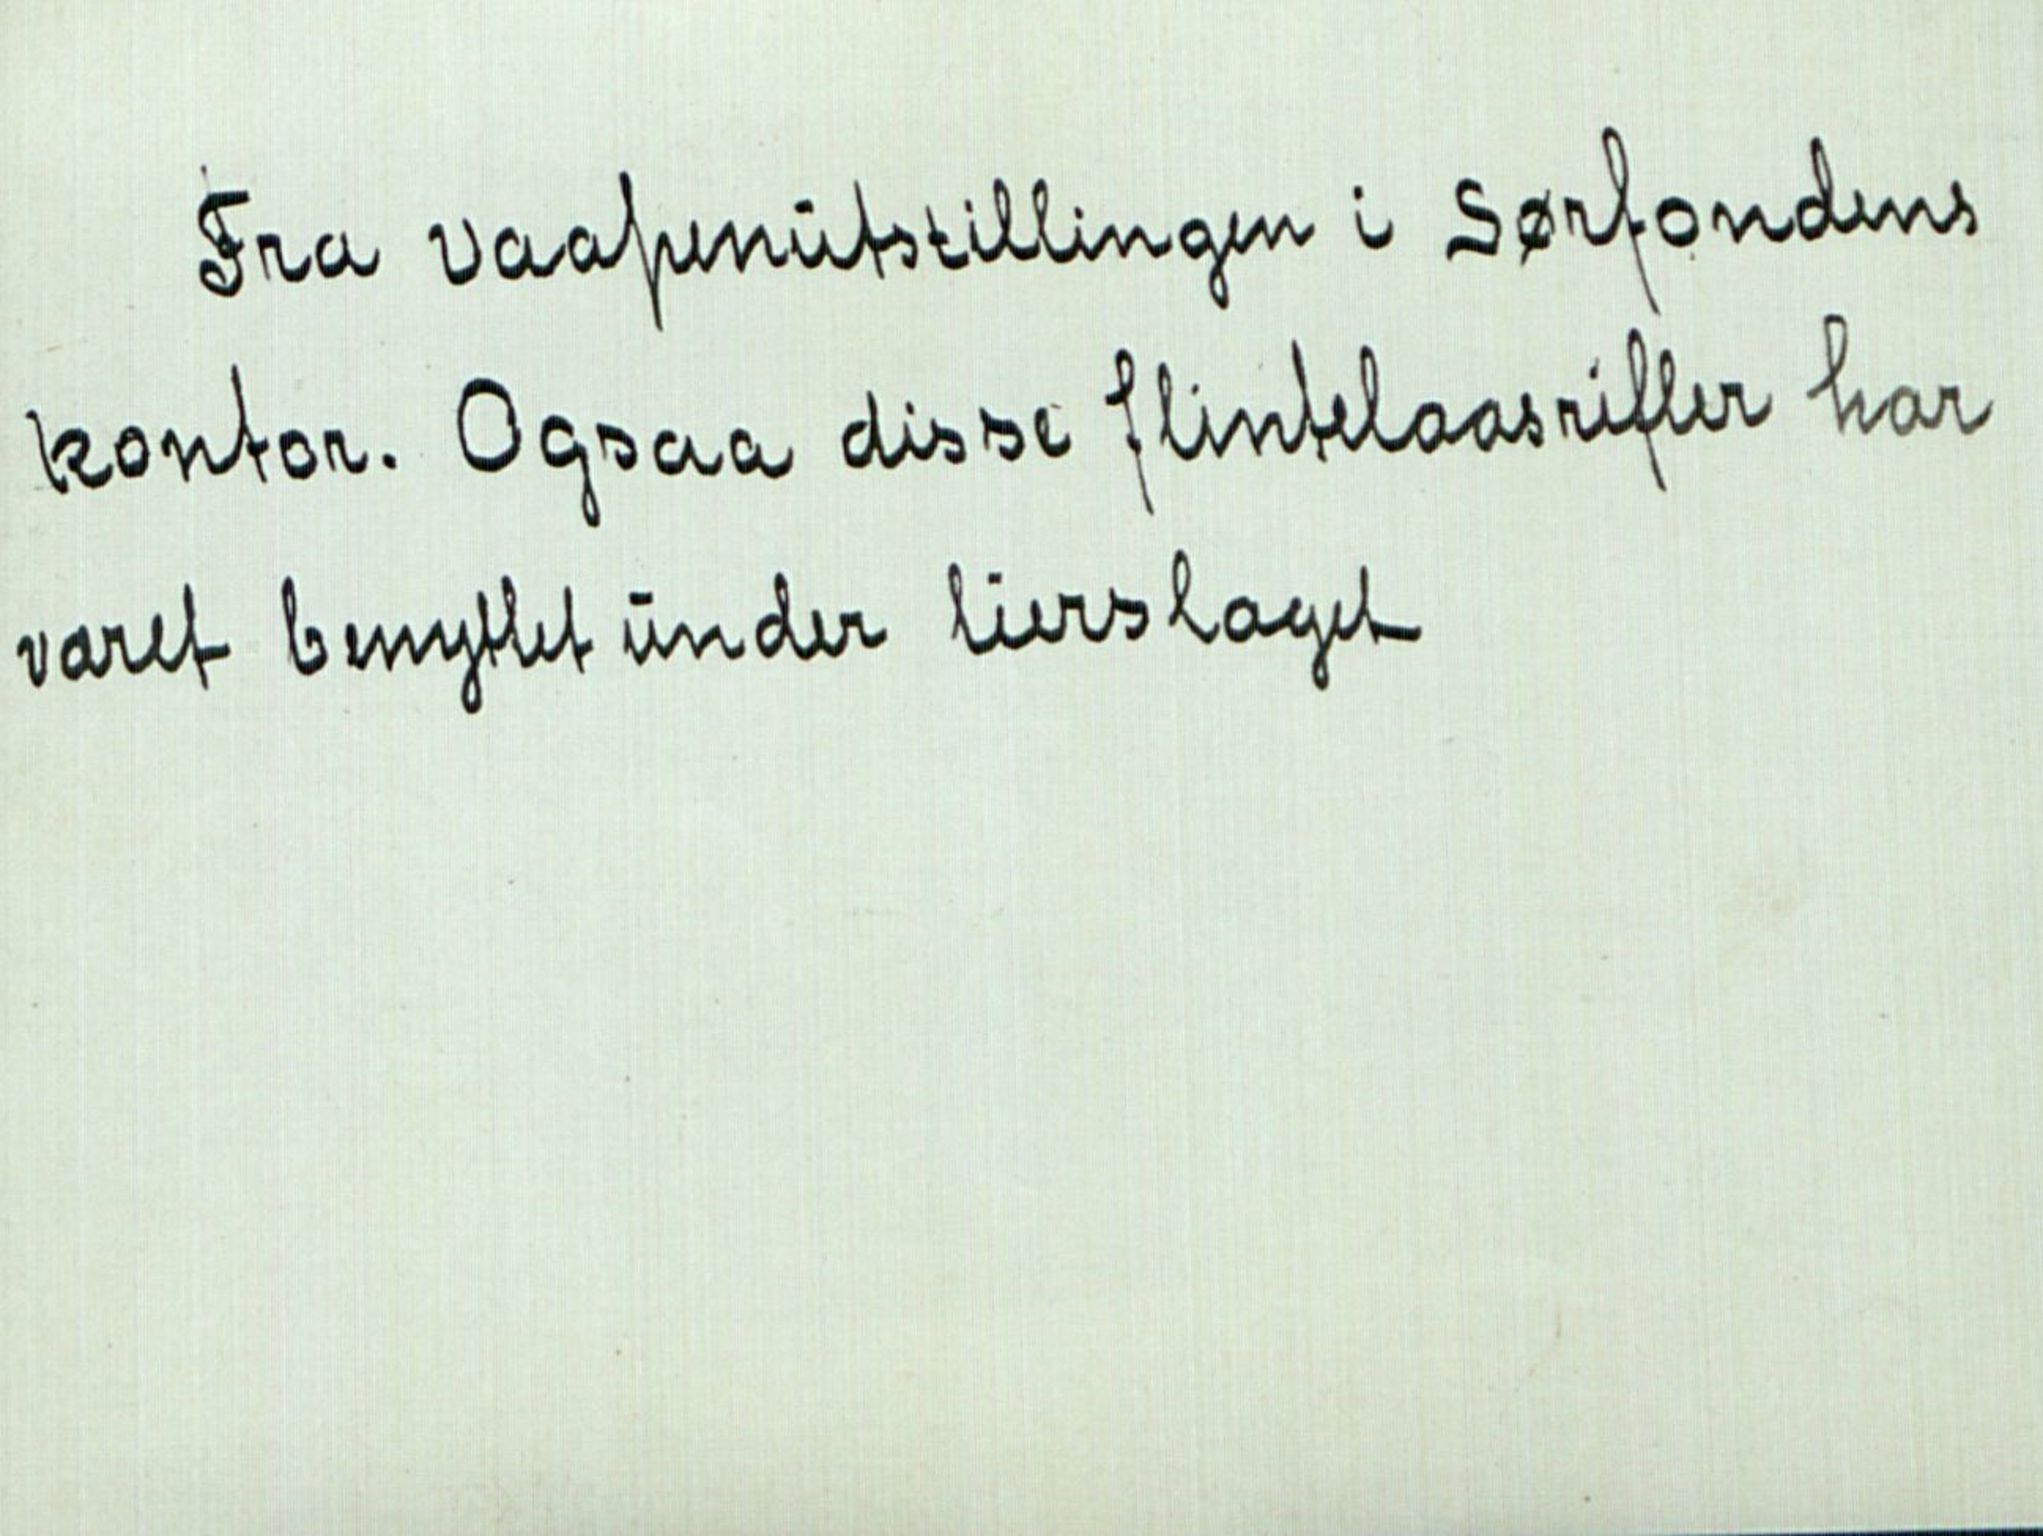 Fra vaapenutstillingen i Sørfondens
kontor. Ogsaa disse flintelaasrifler har
varet benyttet under lierslaget